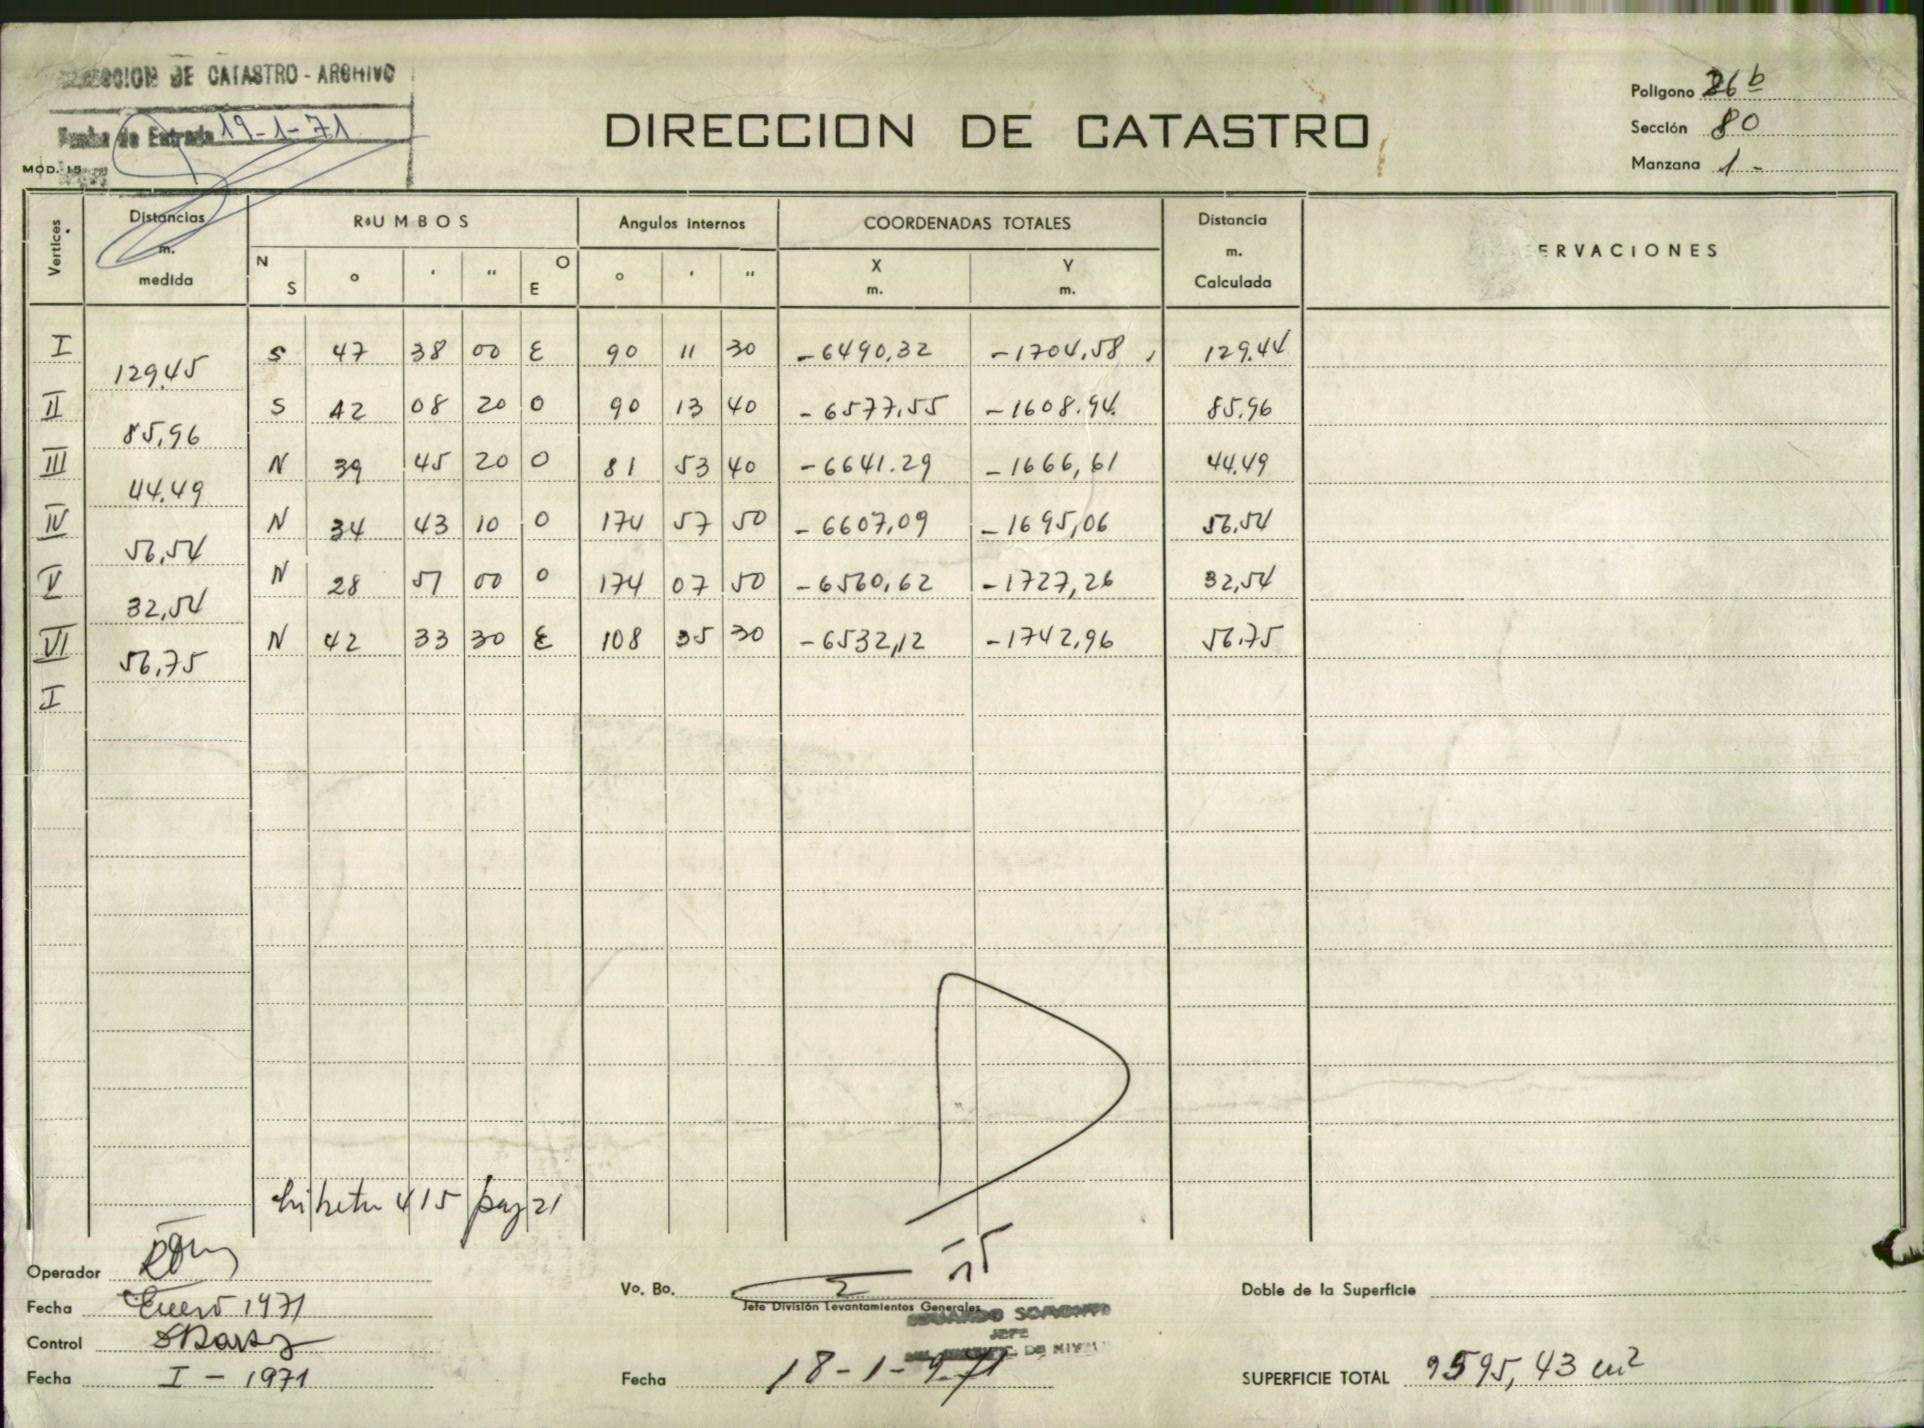 DIRECCION DE CATASTRO - ARCHIVO
Fecha de Entrada 19-1-71
MOD. 15
DIRECCION DE CATASTRO
Poligono 26 b
Sección 80
Manzana 1 -
Vertices Distancias m. medida RUMBOS Angulos internos COORDENADAS TOTALES Distancia m. Calculada ERVACIONES
N S ° ' " O E ° ' " X m. Y m.
I S 47 38 00 E 90 11 30 -6490,32 -1704,58 129.44
129.45
II S 42 08 20 O 90 13 40 -6577,55 -1608.94 85,96
85,96
III N 39 45 20 O 81 53 40 -6641.29 -1666,61 44.49
44.49
IV N 34 43 10 O 174 57 50 -6607,09 -1695,06 56,54
56,54
V N 28 51 00 O 174 07 50 -6560,62 -1727,26 32,54
32,54
VI N 42 33 30 E 108 35 30 -6532,12 -1742,96 56.75
56,75
I
415 pag 21
Operador
Fecha Enero 1971
Control
Fecha I - 1971
Vo. Bo.
Jefe División Levantamientos Generales
JEFE
Fecha 18-1-971
Doble de la Superficie
SUPERFICIE TOTAL 9595,43 m²